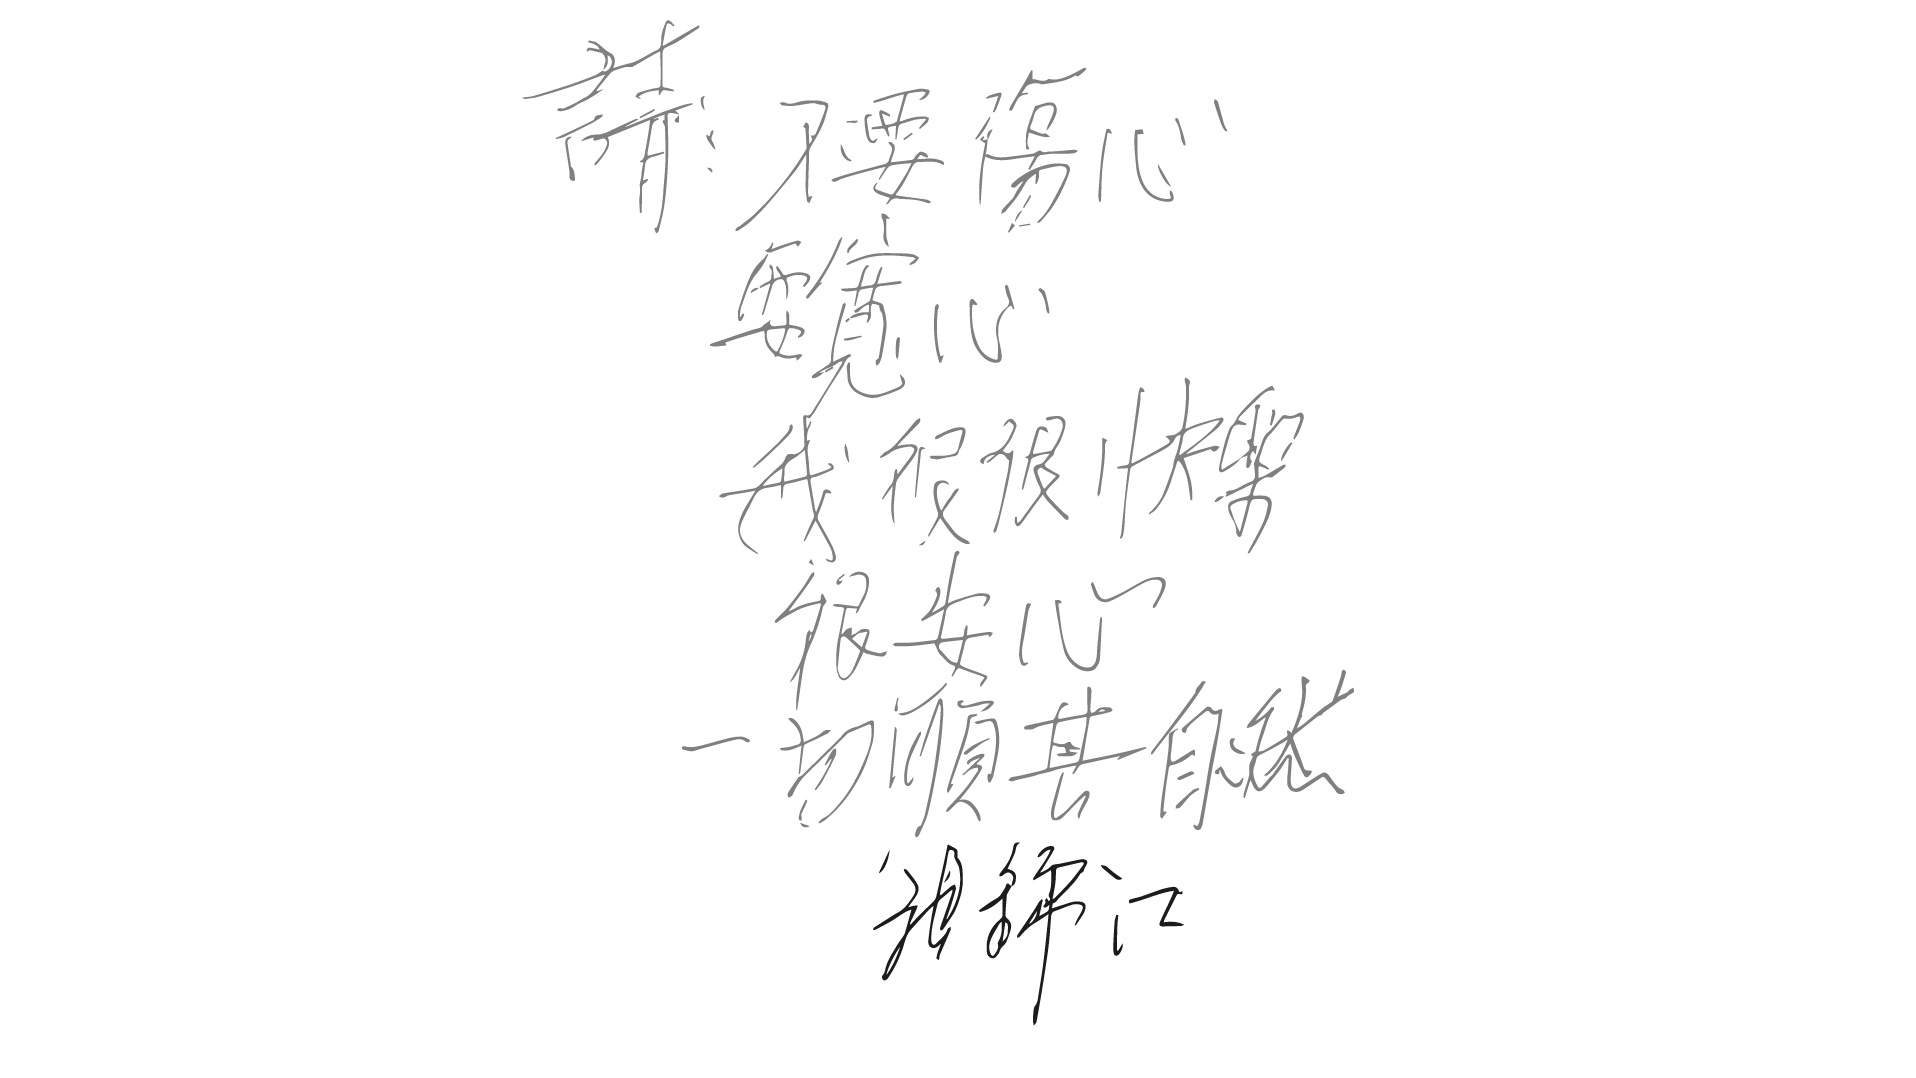 請：不要傷心
要寬心
我很很快樂
很安心
一切順其自然
錦江